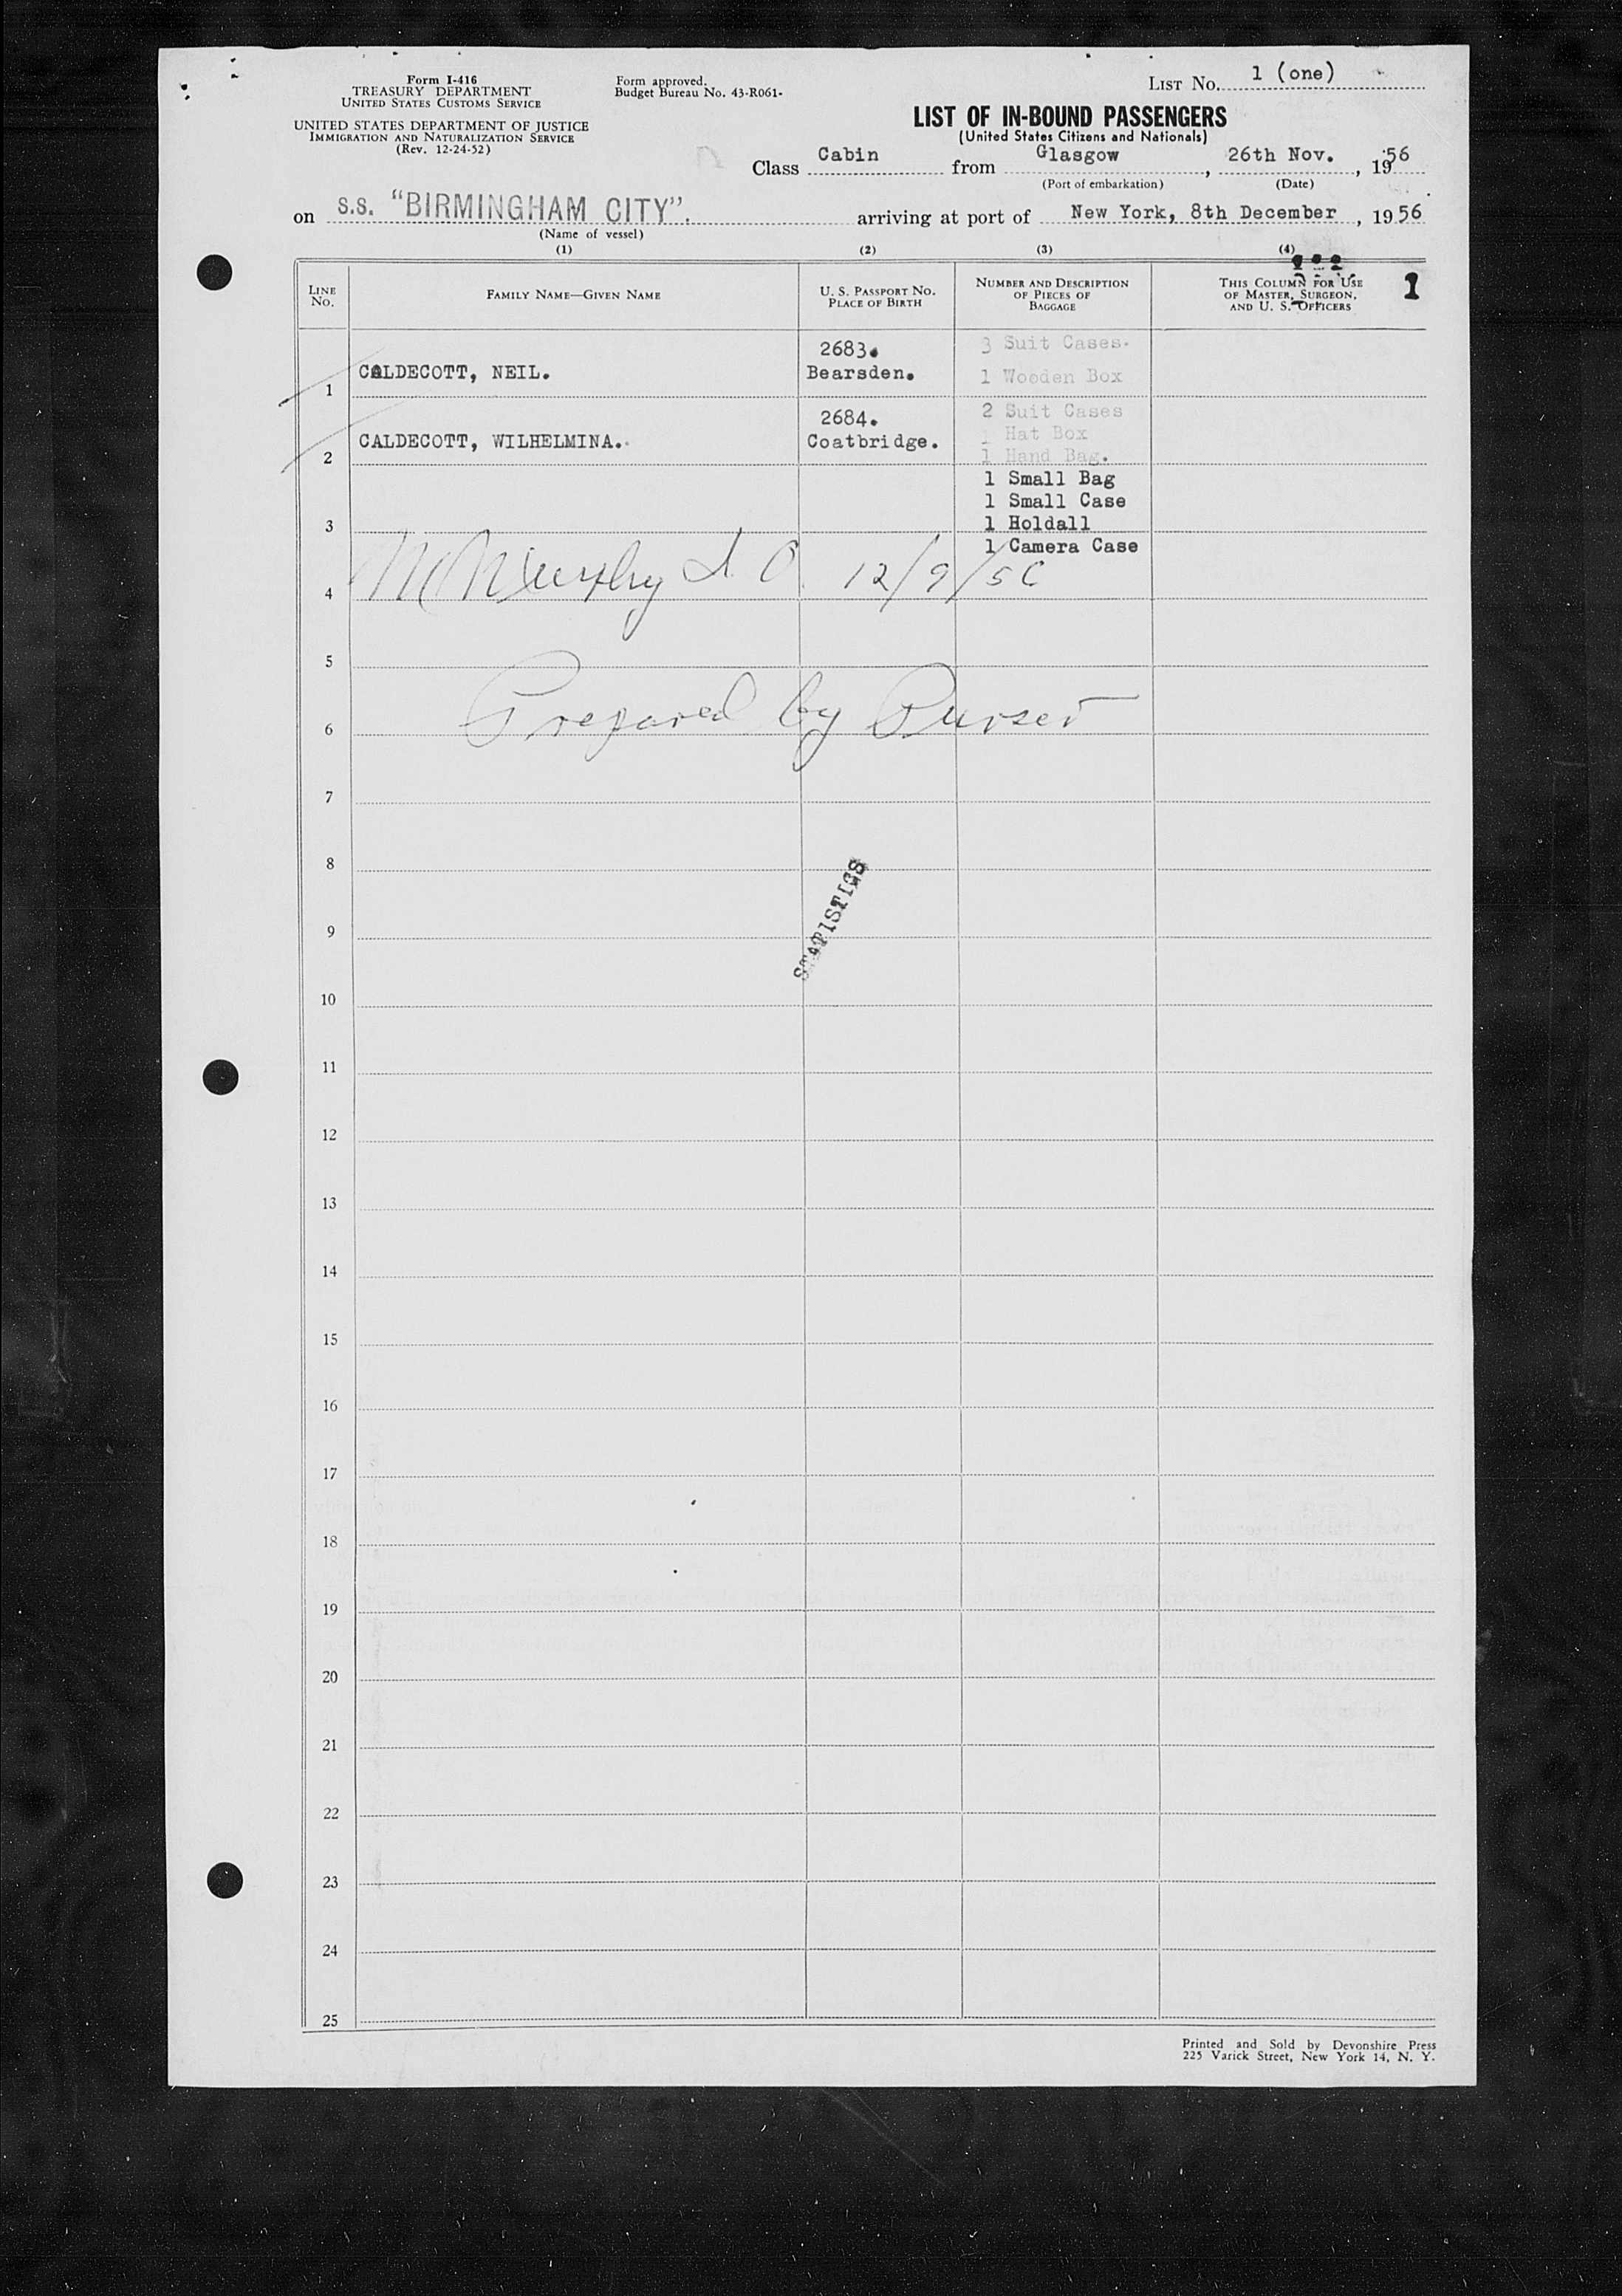 Form I-416
TREASURY DEPARTMENT
UNITED STATES CUSTOMS SERVICE
UNITED STATES DEPARTMENT OF JUSTICE
IMMIGRATION AND NATURALIZATION SERVICE
(Rev. 12-24-52)
Form approved.
Budget Bureau No. 43-R061-
LIST NO. 1 (one)
LIST OF IN-BOUND PASSENGERS
(United States Citizens and Nationals)
Class Cabin from Glasgow, 26th Nov., 1956
(Port of embarkation) (Date)
on S.S. "BIRMINGHAM CITY". arriving at port of New York, 8th December, 1956
(Name of vessel)
(1) (2) (3) (4)
LINE NO.
FAMILY NAME—GIVEN NAME
U. S. PASSPORT NO.
PLACE OF BIRTH
NUMBER AND DESCRIPTION
OF PIECES OF
BAGGAGE
THIS COLUMN FOR USE
OF MASTER, SURGEON,
AND U. S. OFFICERS
1
1 CALDECOTT, NEIL. 2683. Bearsden.
3 Suit Cases.
1 Wooden Box
2 CALDECOTT, WILHELMINA. 2684. Coatbridge.
2 Suit Cases
1 Hat Box
1 Hand Bag.
1 Small Bag
1 Small Case
3
1 Holdall
1 Camera Case
4 Murphy 12/9/56
5
6 Prepared by Purser
7
8
STATISTICS
9
10
11
12
13
14
15
16
17
18
19
20
21
22
23
24
25
Printed and Sold by Devonshire Press
225 Varick Street, New York 14, N. Y.